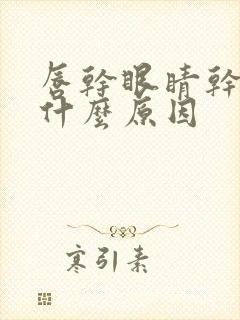 唇幹眼睛幹
什麼原因
寒引素